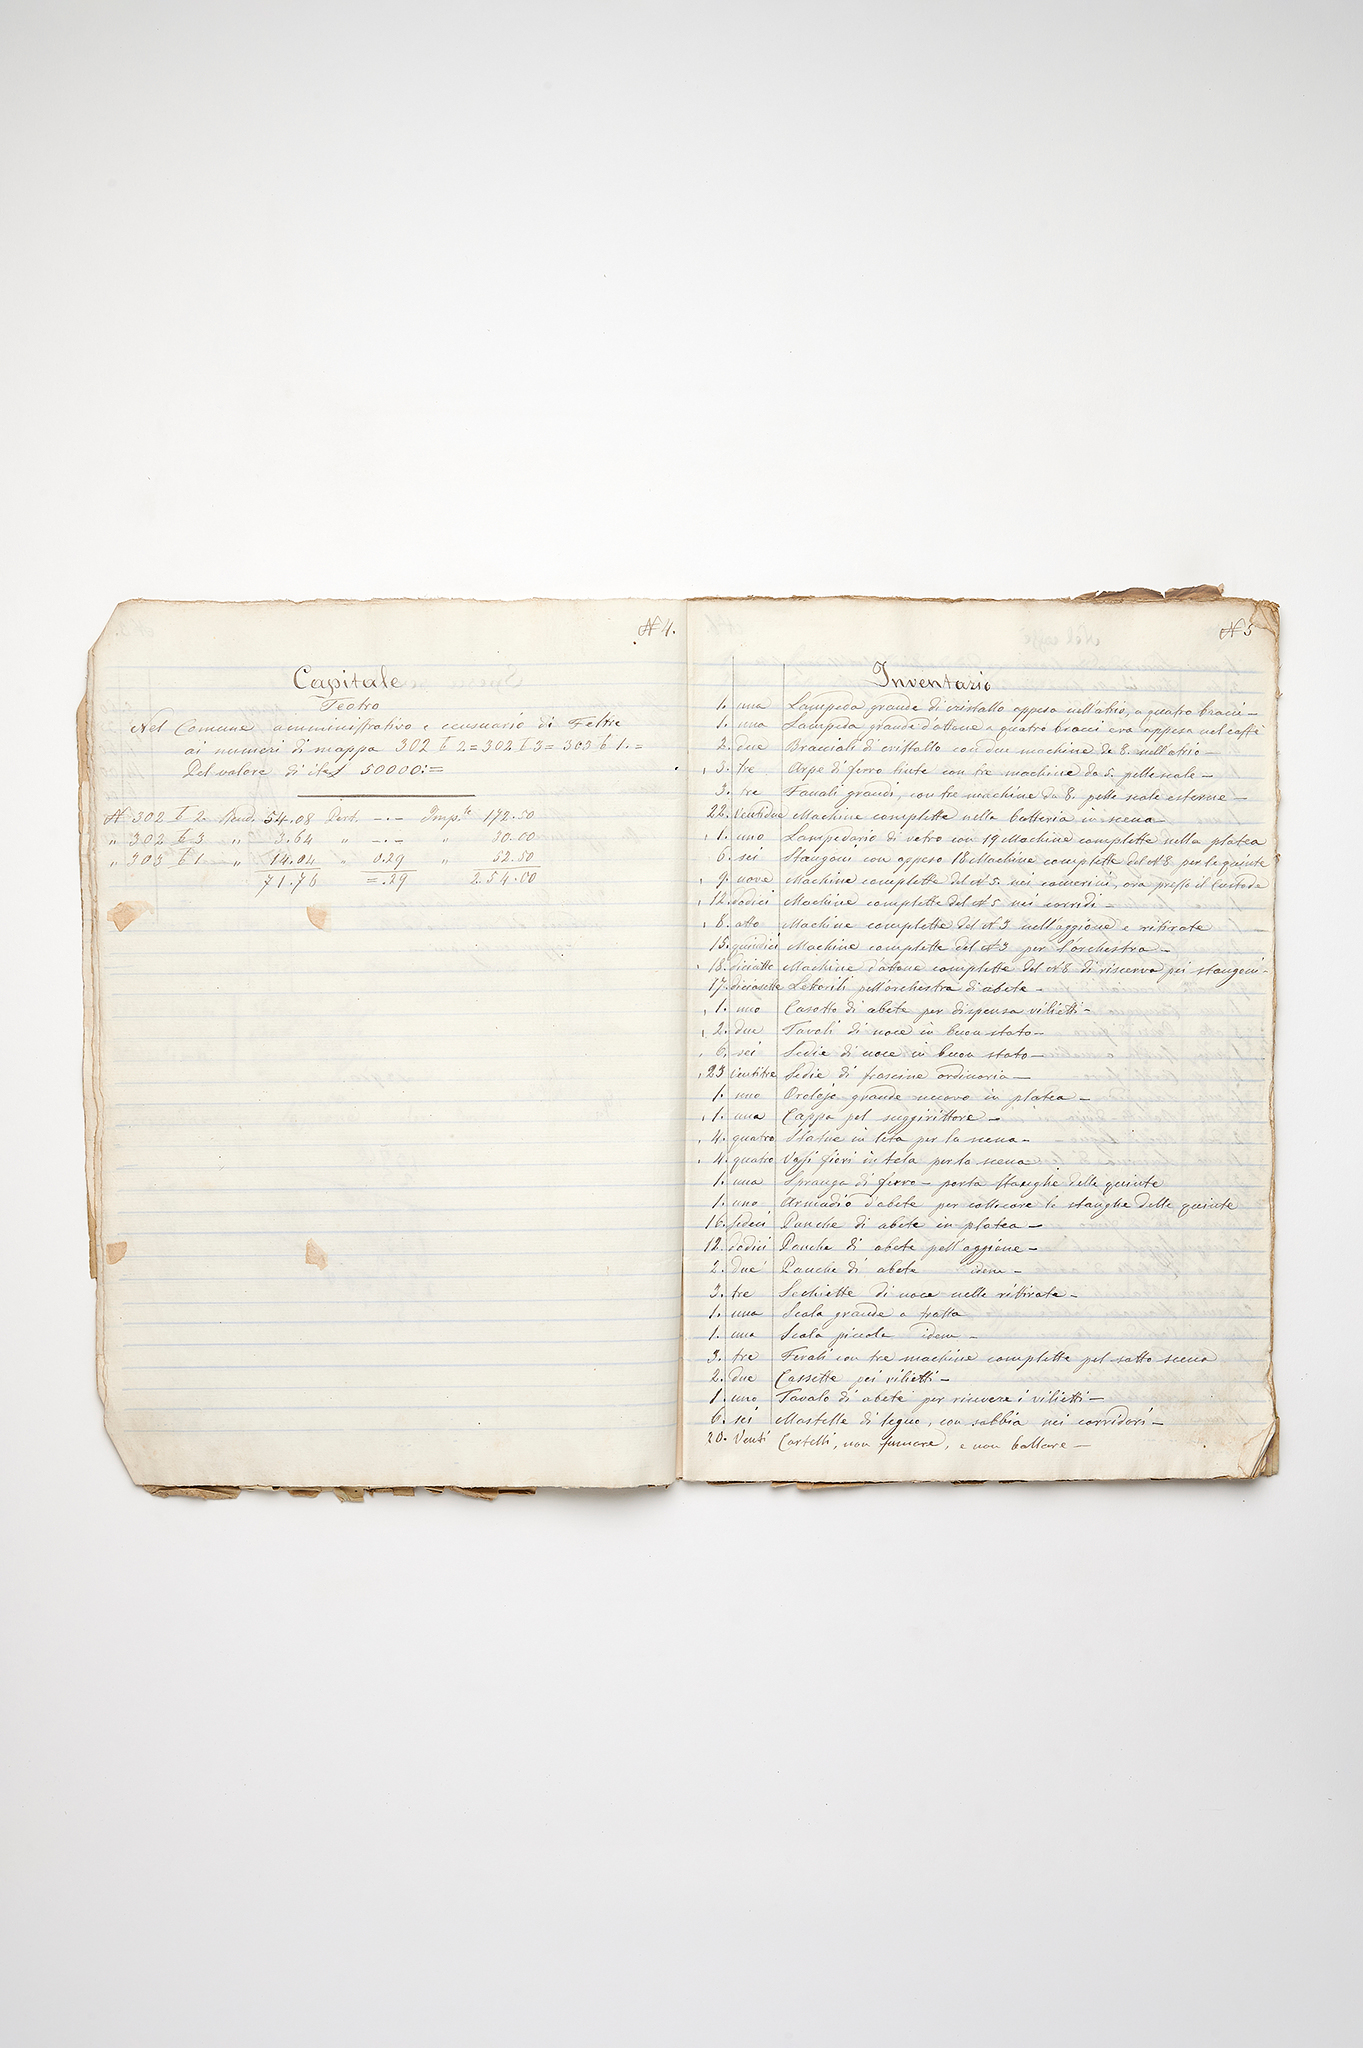 N 4.
Capitale
Teatro
Nel Comune amministrativo e censuario di Feltre
ai numeri di mappa 302 b 2 = 302 b 3 = 303 b 1. =
Del valore di 50000:=
N 302 b 2 Rend. 54.08 Pert. -.- Imp. 172.50
„ 302 b 3 „ 3.64 „ -.- „ 30.00
„ 303 b 1 „ 14.04 „ 0.29 „ 52.50
71.76 =.29 254.00
N 5
Inventario
1. una Lampeda grande di cristallo appesa nell'atrio, a quatro bracci –
1. una Lampeda grande d'attone a quatro bracci era appesa nel caffè
2. due Bracciali di cristallo con due machine da 8. nell'atrio –
3. tre Arpe di ferro tinte con tre machine da 5. pelle scale –
3. tre Fanali grandi, con tre machine da 8. pelle scale esterne –
22. Ventidue Machine complette nella batteria in scena –
1. uno Lampedario di vetro con 19 Machine complette nella platea
6. sei Stangoni con appeso 18 Machine complette del N 8 per le quinte
9. nove Machine complette del N 5. nei camerini, ora presso il Custode
12. dodici Machine complette del N 5 nei corridi –
8. otto Machine complette del N 3 nell'aggione e ritirate
15. quindici Machine complette del N 3 per l'orchestra –
18. diciotto Machine d'atone complette del N 8 di riserva pei stangoni –
17. diciasette Letorili pell'orchestra di abete –
1. uno Casotto di abete per dispensa vilietti –
2. due Tavoli di noce in buon stato –
6. sei Sedie di noce in buon stato –
23 Ventitre Sedie di frascine ordinaria –
1. uno Orolojo grande nuovo in platea –
1. una Cappa pel suggirittore –
4. quatro Statue in tela per la scena –
4. quatro Vassi fiori in tela per la scena
1. una Spranga di ferro – porta stanghe delle quinte
1. uno Armadio d'abete per collocare le stanghe delle quinte
16. Sedeci Panche di abete in platea –
12. dodici Panche di abete pell'aggione –
2. due Panche di abete idem –
3. tre Sechiette di noce nelle rittirate –
1. una Scala grande a tratta
1. una Scala piccola idem –
3. tre Ferali con tre machine complette pel sotto scena
2. due Cassette pei vilietti –
1. uno Tavolo di abete per ricevere i vilietti –
6. sei Mastelle di legno, con sabbia nei corridori –
20. Venti Cartelli, non fumare, e non ballare –